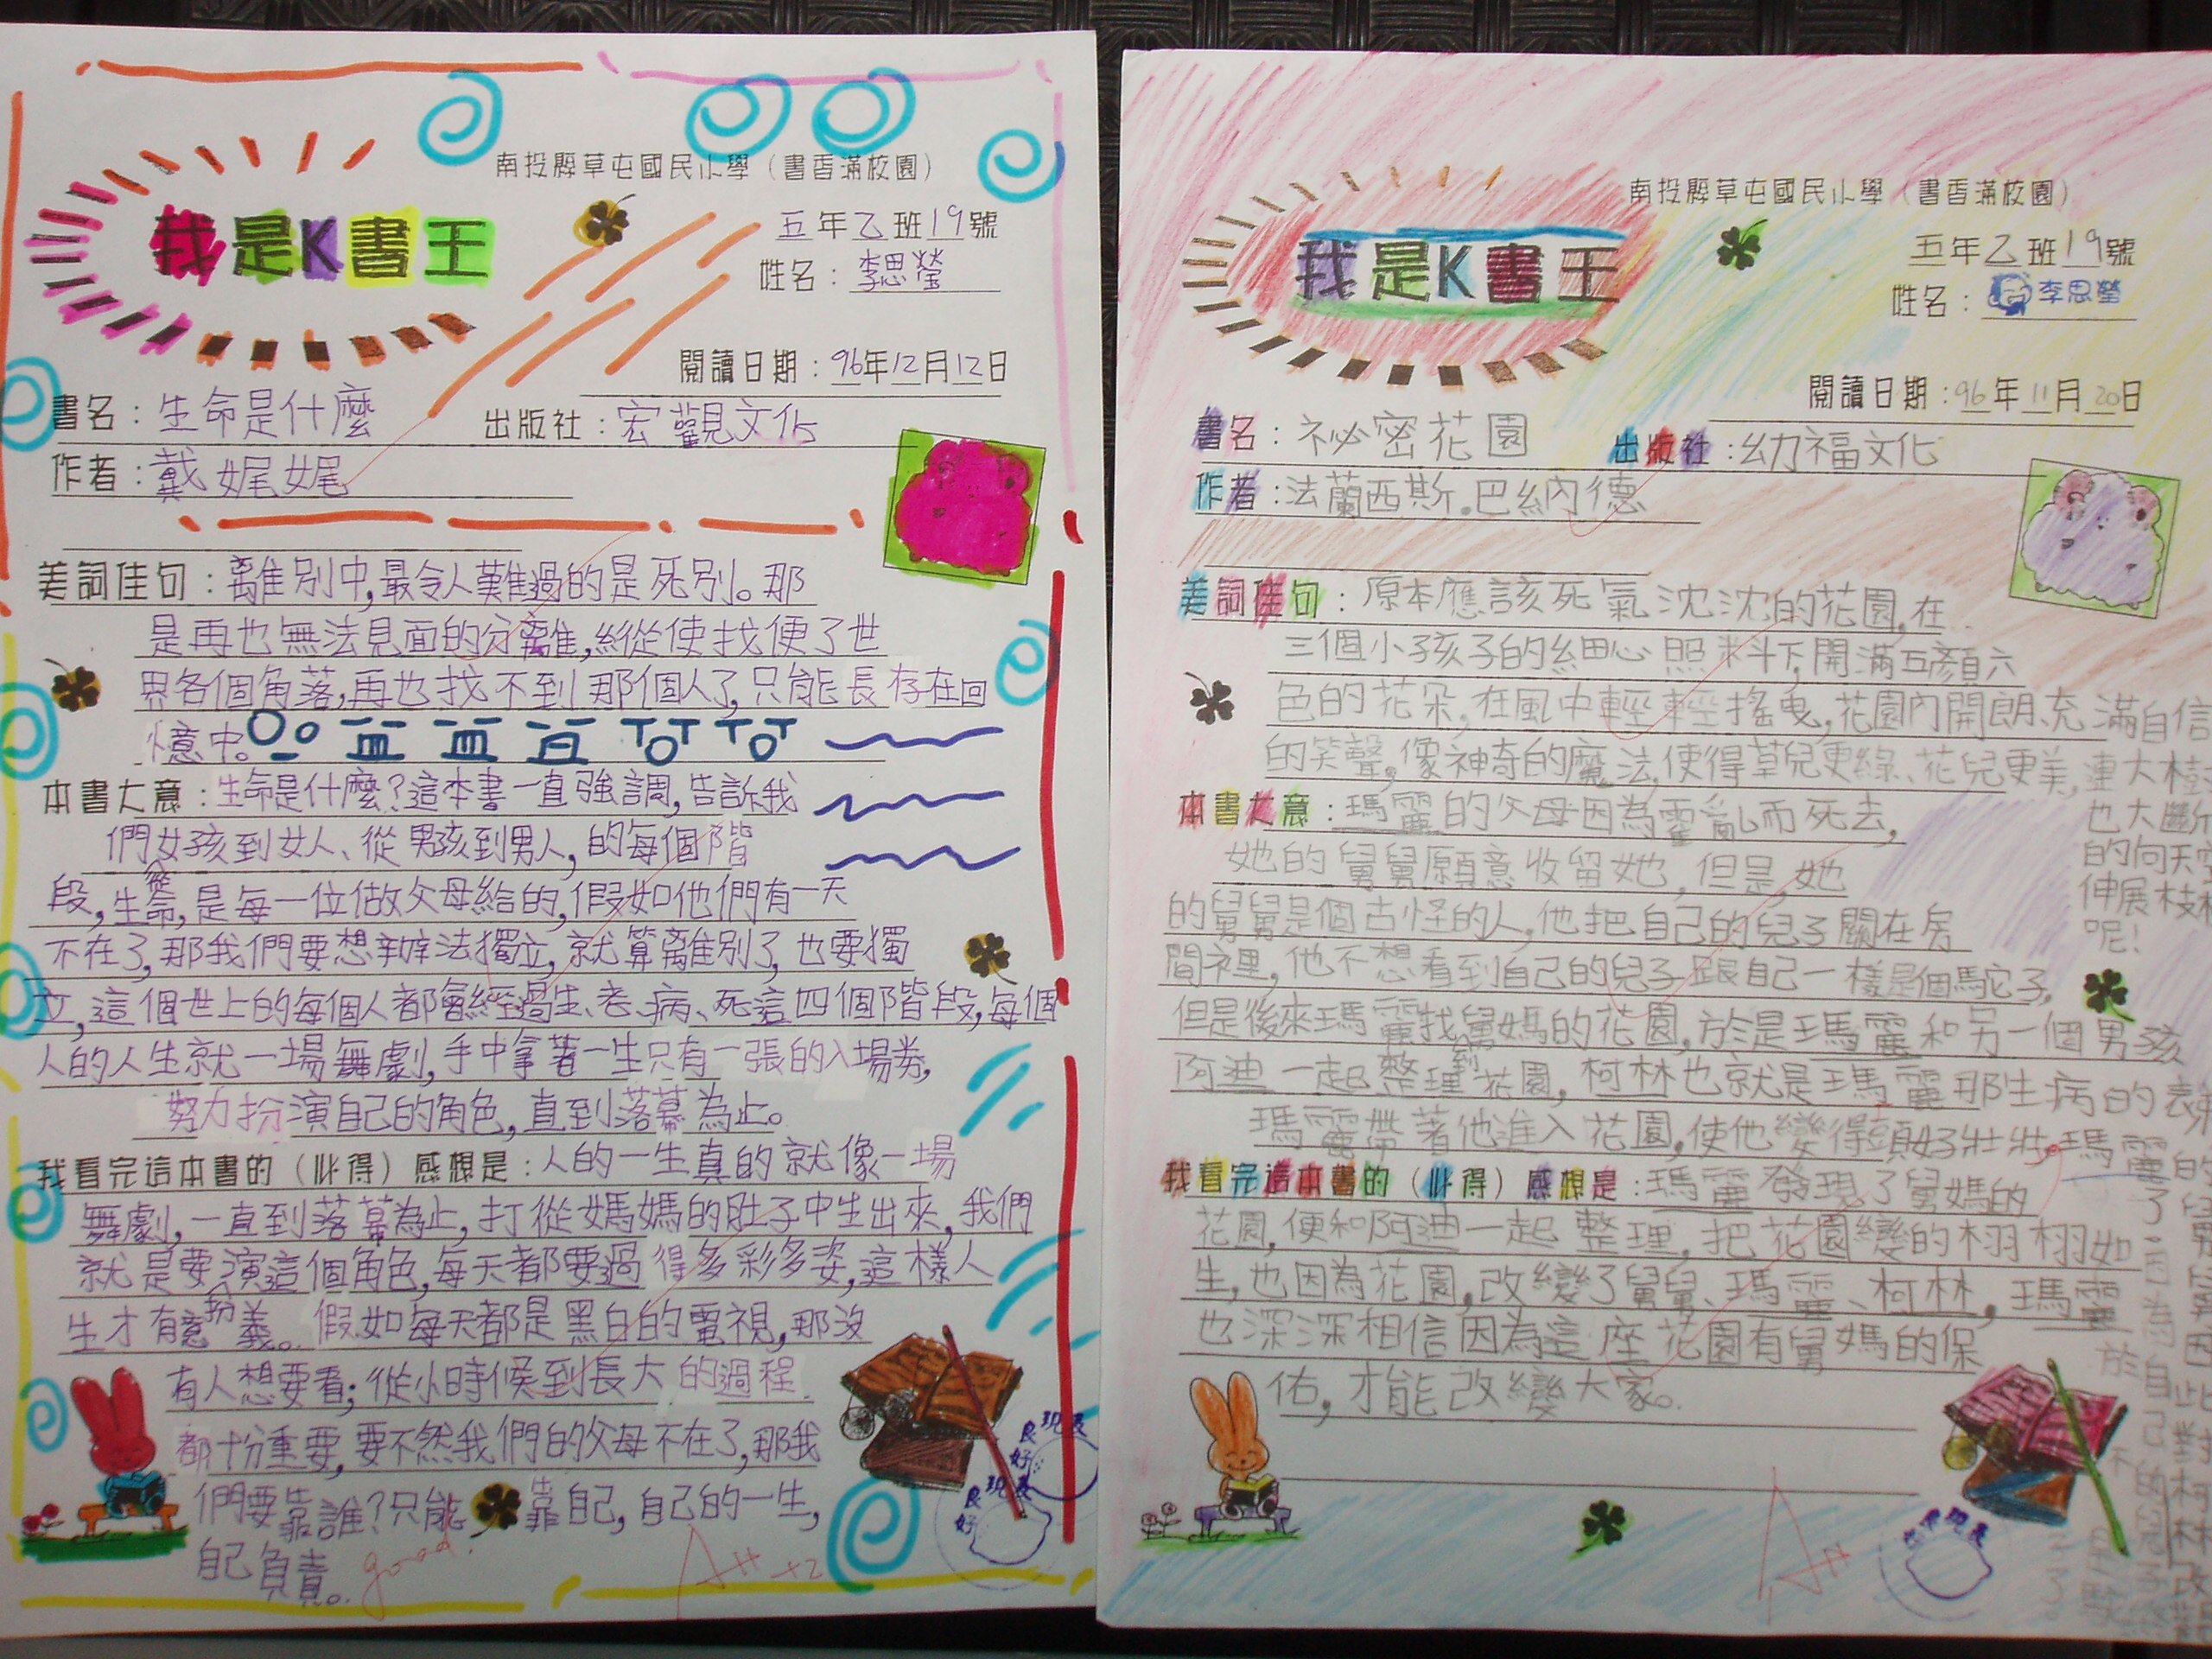 南投縣草屯國民小學（書香滿校園）
我是K書王
五年乙班19號
姓名：李思瑩
閱讀日期：96年12月12日
書名：生命是什麼 出版社：宏觀文化
作者：戴娓娓
美詞佳句：離別中,最令人難過的是死別。那
是再也無法見面的分離,縱使找便了世
界各個角落,再也找不到那個人了,只能長存在回
憶中。
本書大意：生命是什麼?這本書一直強調,告訴我
們女孩到女人、從男孩到男人,的每個階
段,生命,是每一位做父母給的,假如他們有一天
不在了,那我們要想辦法獨立,就算離別了,也要獨
立,這個世上的每個人都會經過生、老、病、死這四個階段,每個
人的人生就一場舞劇,手中拿著一生只有一張的入場券,
努力扮演自己的角色,直到落幕為止。
我看完這本書的（心得）感想是：人的一生真的就像一場
舞劇,一直到落幕為止,打從媽媽的肚子中生出來,我們
就是要扮演這個角色,每天都要過得多彩多姿,這樣人
生才有意義。假如每天都是黑白的電視,那沒
有人想要看;從小時候到長大的過程
都十分重要,要不然我們的父母不在了,那我
們要靠誰?只能靠自己,自己的一生,
自己負責。
good!
A++ +2
表現良好
表現良好
南投縣草屯國民小學（書香滿校園）
我是K書王
五年乙班19號
姓名：李思瑩
閱讀日期：96年11月20日
書名：祕密花園 出版社：幼福文化
作者：法蘭西斯。巴納德
美詞佳句：原本應該死氣沈沈的花園,在
三個小孩子的細心照料下,開滿五顏六
色的花朵,在風中輕輕搖曳,花園內開朗、充滿自信
的笑聲,像神奇的魔法,使得草兒更綠、花兒更美,連大樹
也大斷
的向天空
伸展枝枒
呢!
本書大意：瑪麗的父母因為霍亂而死去,
她的舅舅願意收留她,但是,她
的舅舅是個古怪的人,他把自己的兒子關在房
間裡,他不想看到自己的兒子跟自己一樣是個駝子,
但是後來瑪麗找到舅媽的花園,於是瑪麗和另一個男孩
阿迪一起整理花園,柯林也就是瑪麗那生病的表
瑪麗帶著他進入花園,使他變得頭好壯壯,瑪麗的
我看完這本書的（心得）感想是：瑪麗發現了舅媽的
花園,便和阿迪一起整理,把花園變的栩栩如
生,也因為花園,改變了舅舅、瑪麗、柯林,瑪麗
也深深相信因為這座花園有舅媽的保
佑,才能改變大家。
A++